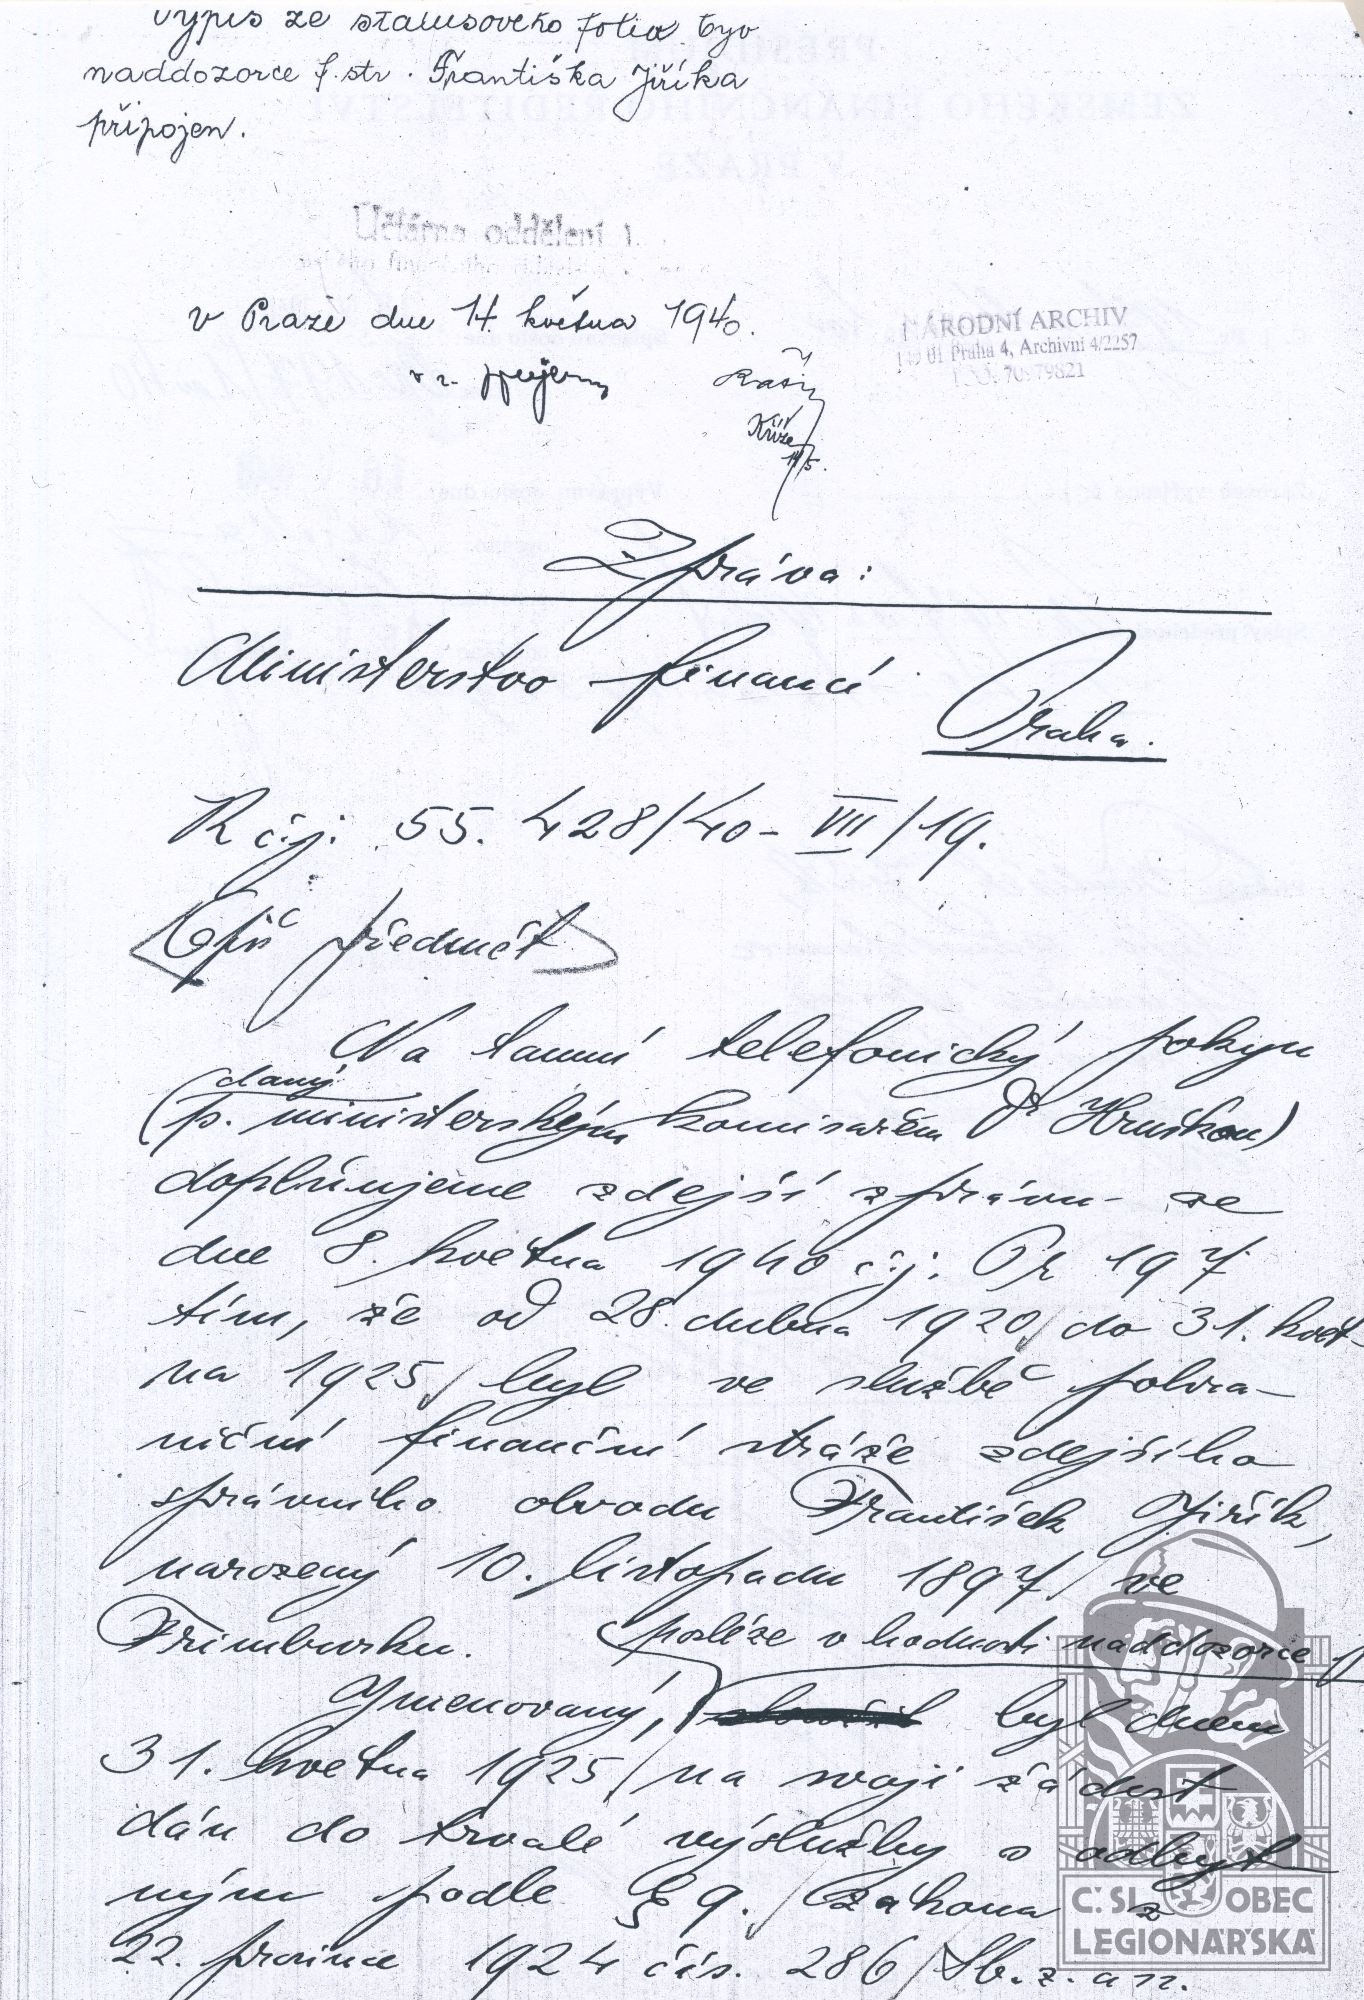 výpis ze statusového folia býv
naddozorce f. str. Františka Jiříka
připojen.
Účtárna oddělení I.
v Praze dne 14. května 1940.
NÁRODNÍ ARCHIV
149 01 Praha 4, Archivní 4/2257
IČO: 70979821
Kříže
14/5.
Zpráva:
Ministerstvo financí
Praha.
K č.j. 55.428/40-VII/19.
Opiš předmět
Na tamní telefonický pokyn
daný
(p. ministerským komisařem Dr Hruškou)
doplňujeme zdejší zprávu ze
dne 8. května 1940 č.j. Pr 197
tím, že od 28. dubna 1920 do 31. květ-
na 1925 byl ve službě pohra-
niční finanční stráže zdejšího
správního obvodu František Jiřík,
narozený 10. listopadu 1897 ve
Frimburku.
posléze v hodnosti naddozorce
Jmenovaný, byl dnem
31. května 1925 na svoji žádost
dán do trvalé výslužby s odbyt
ným podle § 9. zákona z
22. prosince 1924 čís. 286 Sb. z. a n.
ČSL. OBEC
LEGIONÁŘSKÁ